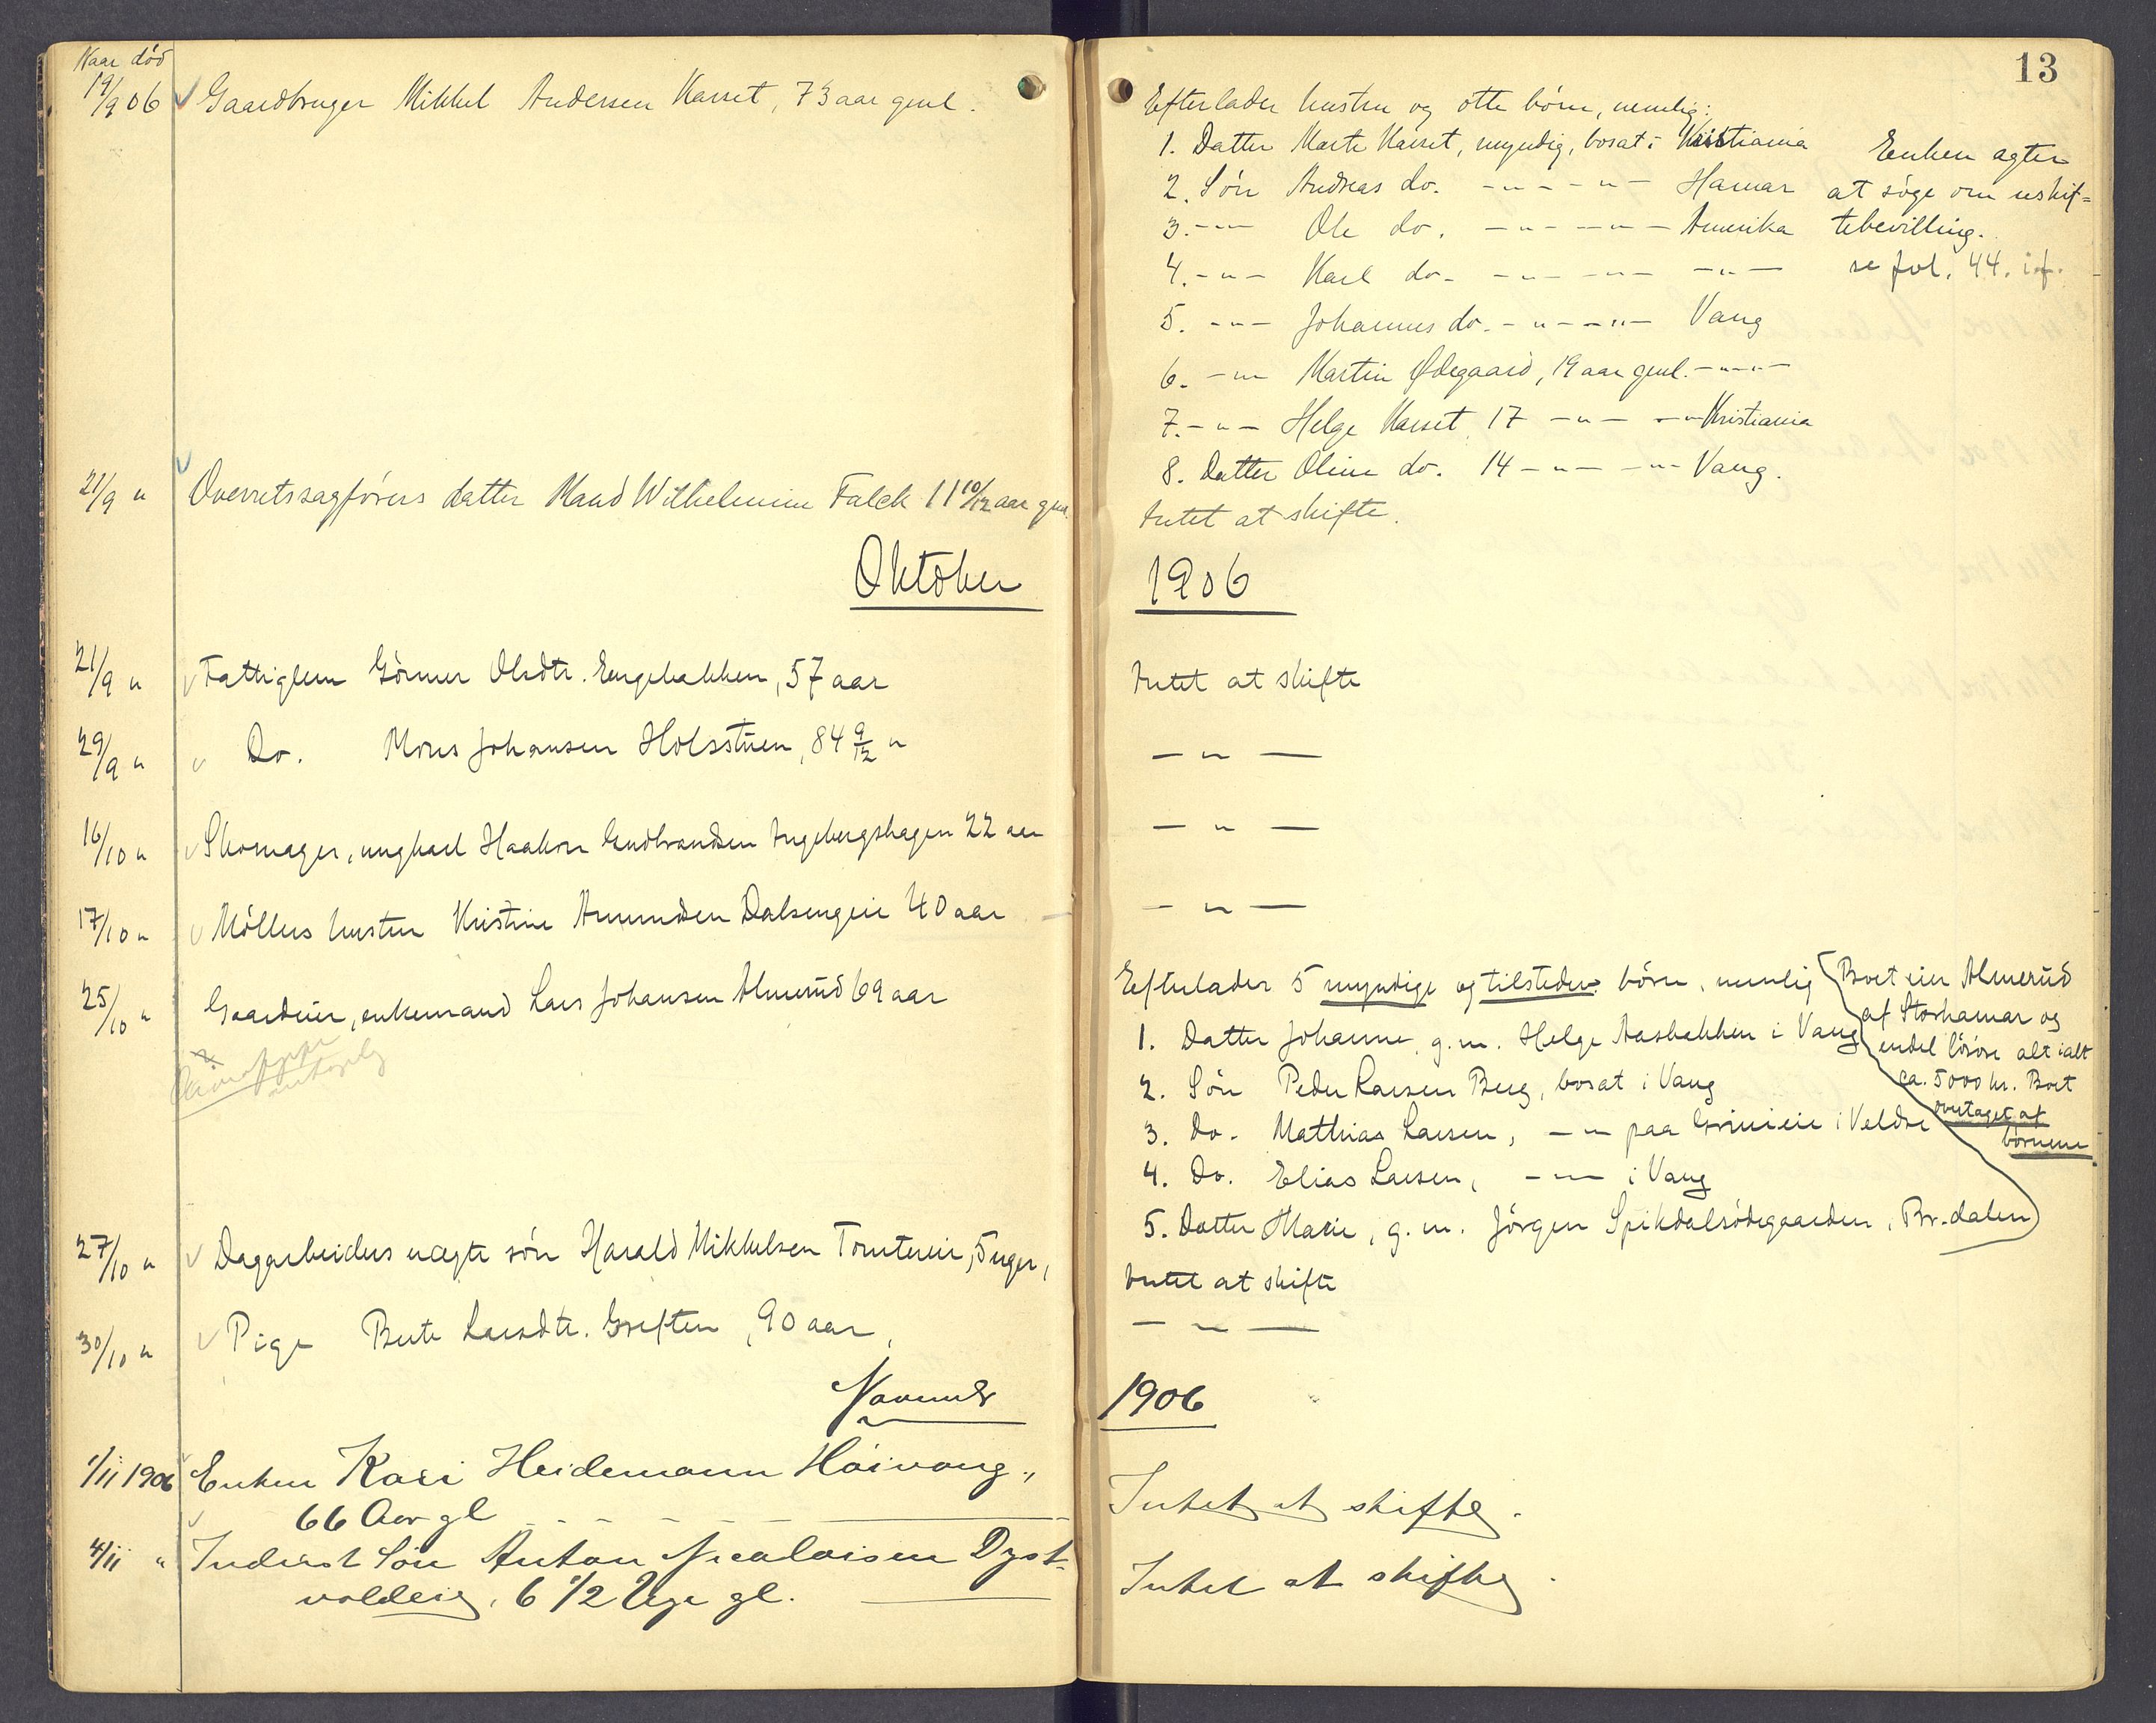 Naar død
19/9 06 Gaardbruger Mikkel Andersen Karset, 73 aar gml.
21/9 " Overretssagførers datter Maud Wilhelmine Falck 11 10/12 aar gml.
Oktober
21/9 " Fattiglem Gönner Olsdtr. Engebakken, 57 aar
29/9 " Do. Mons Johansen Holsstuen, 84 9/12 "
16/10 " Skomager, ungkarl Haakon Gudbrandsen Ingebergshagen 22 aar
17/10 " Møllers hustru Kristine Amundsen Dalsengeie 40 aar
25/10 " Gaardeier, enkemand Lars Johansen Almerud 69 aar
27/10 " Dagarbeiders uægte søn Harald Mikkelsen Tomtereie, 5 uger,
30/10 " Pige Berte Larsdtr. Greften, 90 aar,
Novembr
1/11 1906 Enken Kari Heidemann Høivang.,
66 Aar gl
4/11 " Inderst Søn Anton Nicolaisen Dyst-
voldeie, 6 1/2 Uge gl.
13
Efterlader hustru og otte børn, nemlig:
1. Datter Marte Karset, myndig, bosat i Kristiania
2. Søn Andreas do. - " - - " - Hamar
3. - " - Ole do. - " - - " - Amerika
4. - " - Karl do. - " - - " - - " -
5. - " - Johannes do. - " - - " - Vang
6. - " - Martin Ødegaard, 19 aar gml. - " - " -
7. - " - Helge Karset, 17 - " - - " - Kristiania
8. Datter Oline do. 14 - " - - " - Vang.
Enken agter
at søge om uskif=
tebevilling.
se fol. 44. if.
Intet at skifte.
1906
Intet at skifte
— " —
— " —
— " —
Efterlader 5 myndige og tilstedev. børn, nemlig
1. Datter Johanne, g. m. Helge Aasbakken i Vang
2. Søn Peder Larsen Berg, bosat i Vang
3. Do. Mathias Larsen, - " - paa Grinieie i Veldre
4. Do. Elias Larsen, - " - i Vang
5. Datter Marie, g. m. Jørgen Spikdalsødegaarden, Br.dalen
Boet eier Almerud
af Storhamar og
endel løsøre alt ialt
ca. 5000 kr. Boet
overtaget af
børnene
Intet at skifte
— " —
1906
Intet at skifte.
Intet at skifte.